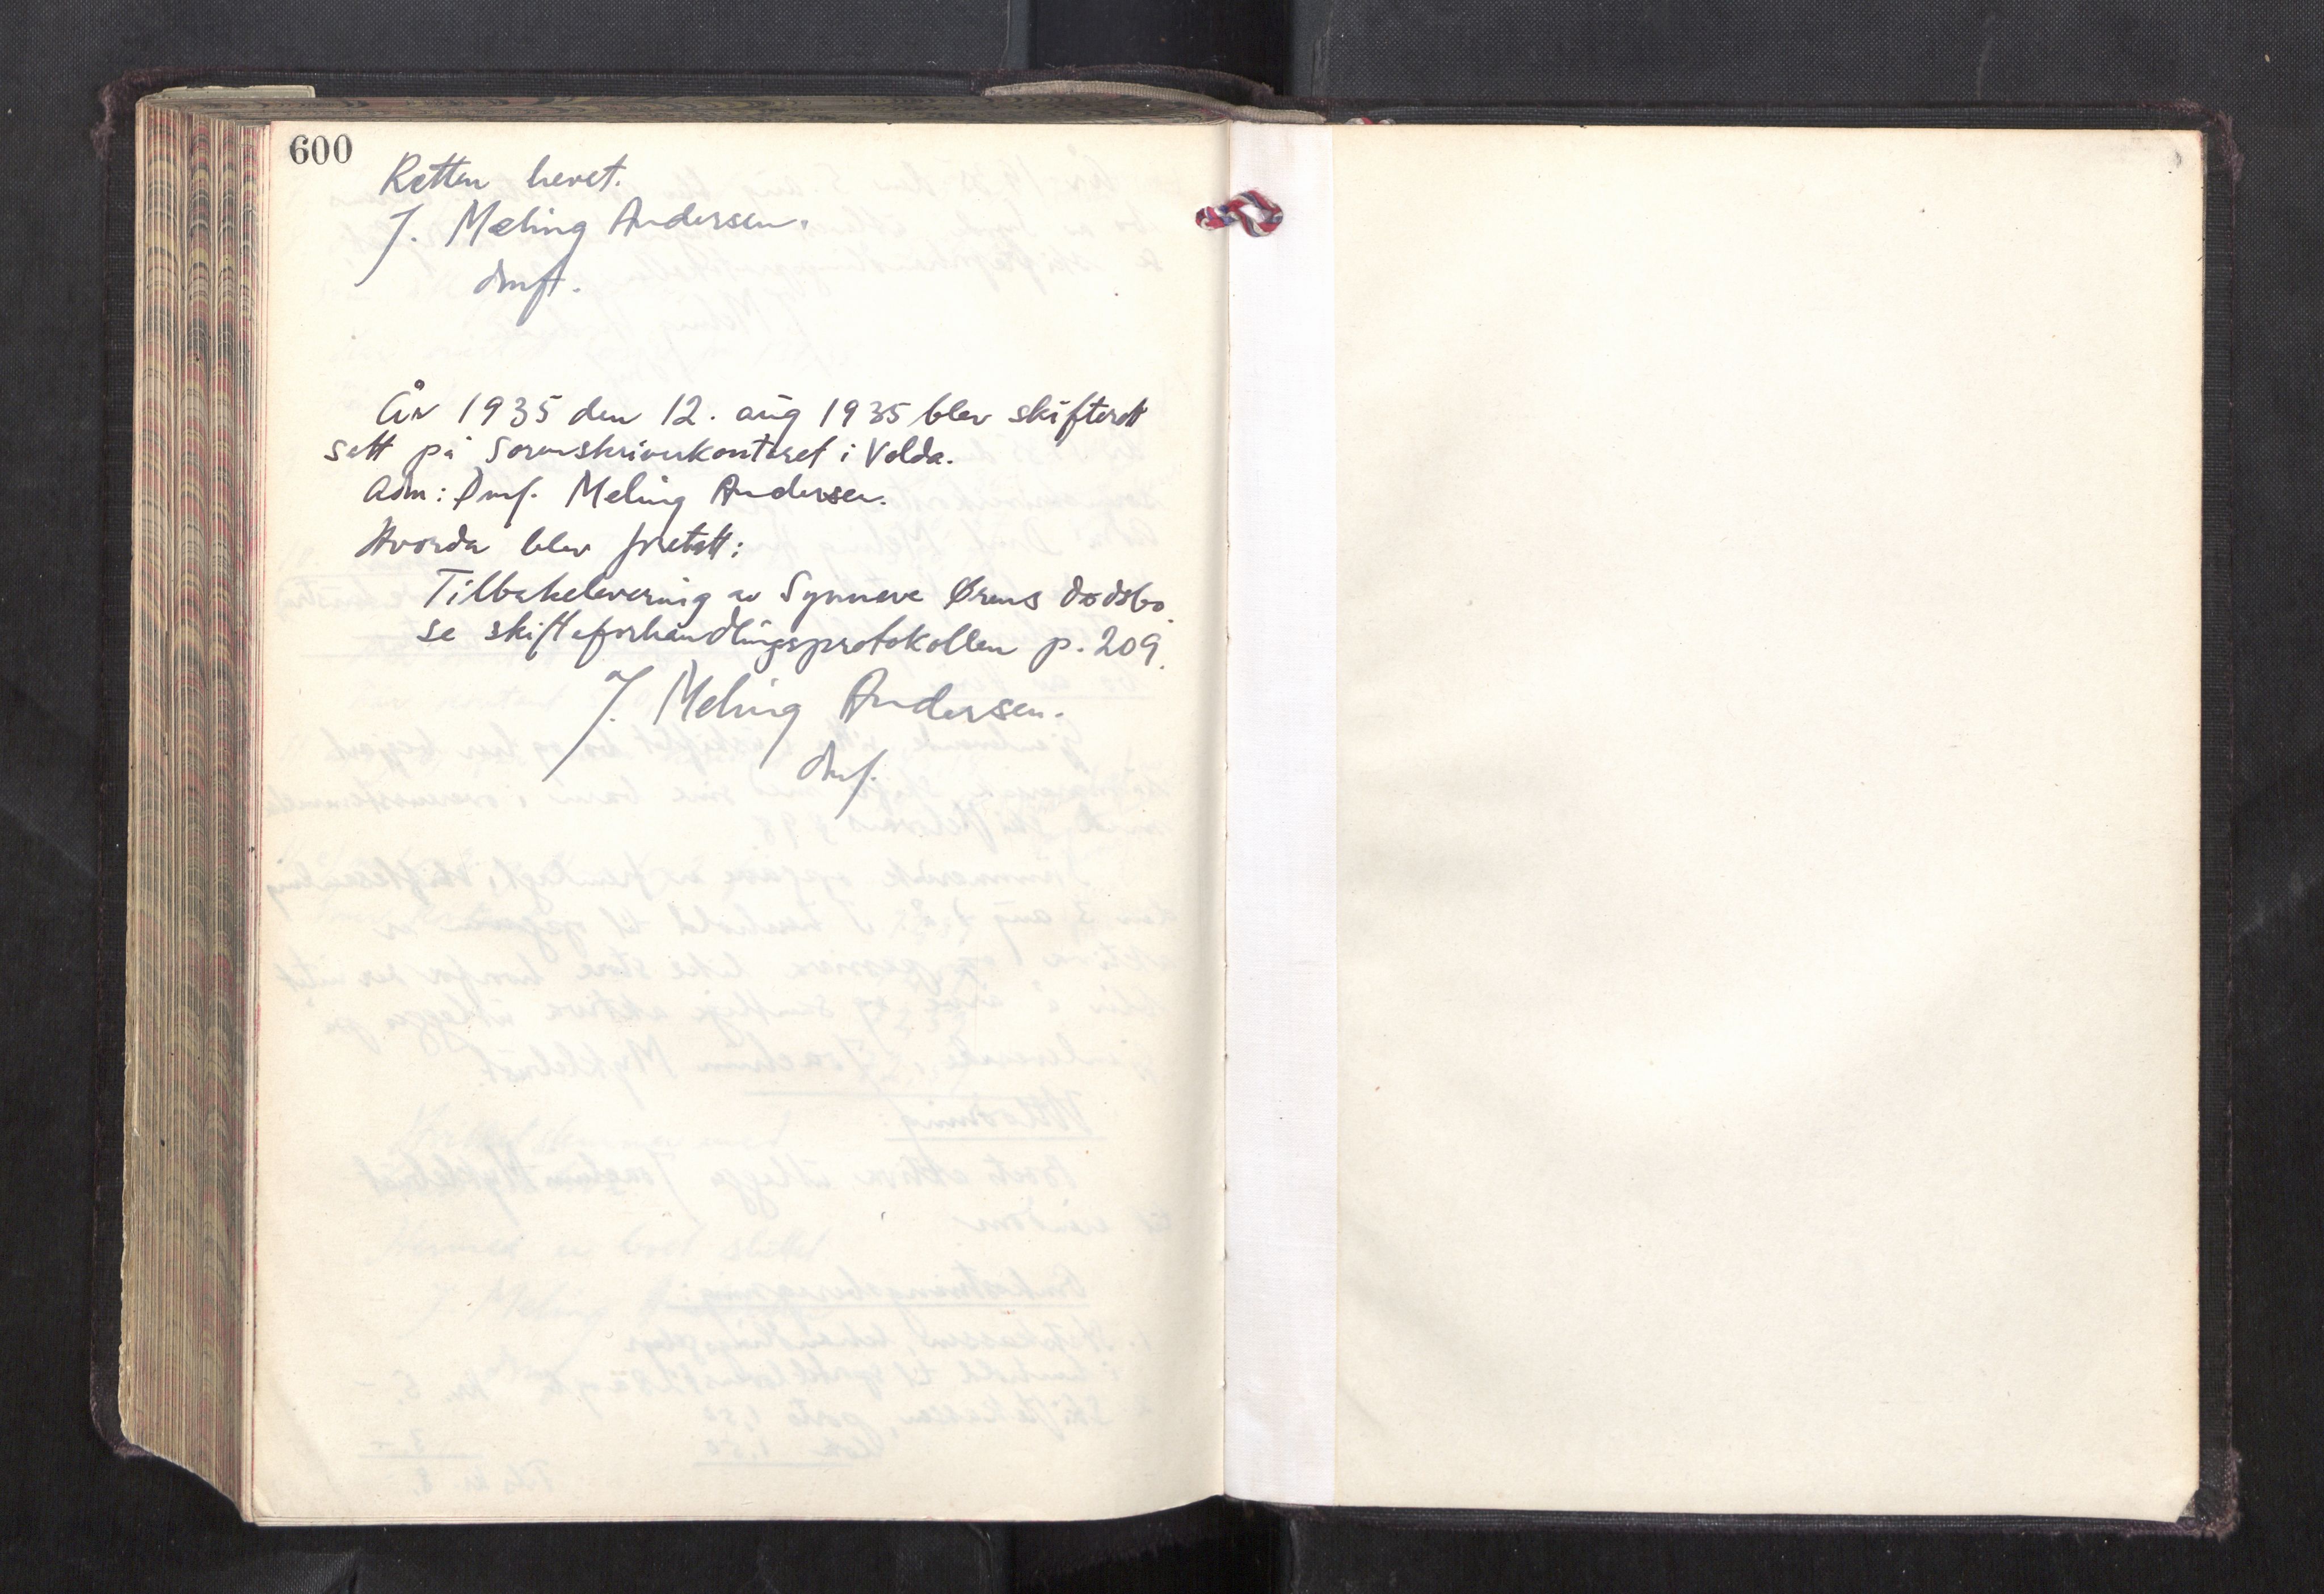 600
Retten hevet.
J. Meling Andersen.
dmft.
År 1935 den 12. aug 1935 blev skifterett
satt på Sorenskriverkontoret i Volda.
Adm: Dmf. Meling Andersen.
Hvorda blev foretatt:
Tilbakelevering av Synneve Ørens dødsbo.
se skifteforhandlingsprotokollen p. 209.
J. Meling Andersen.
dmf.